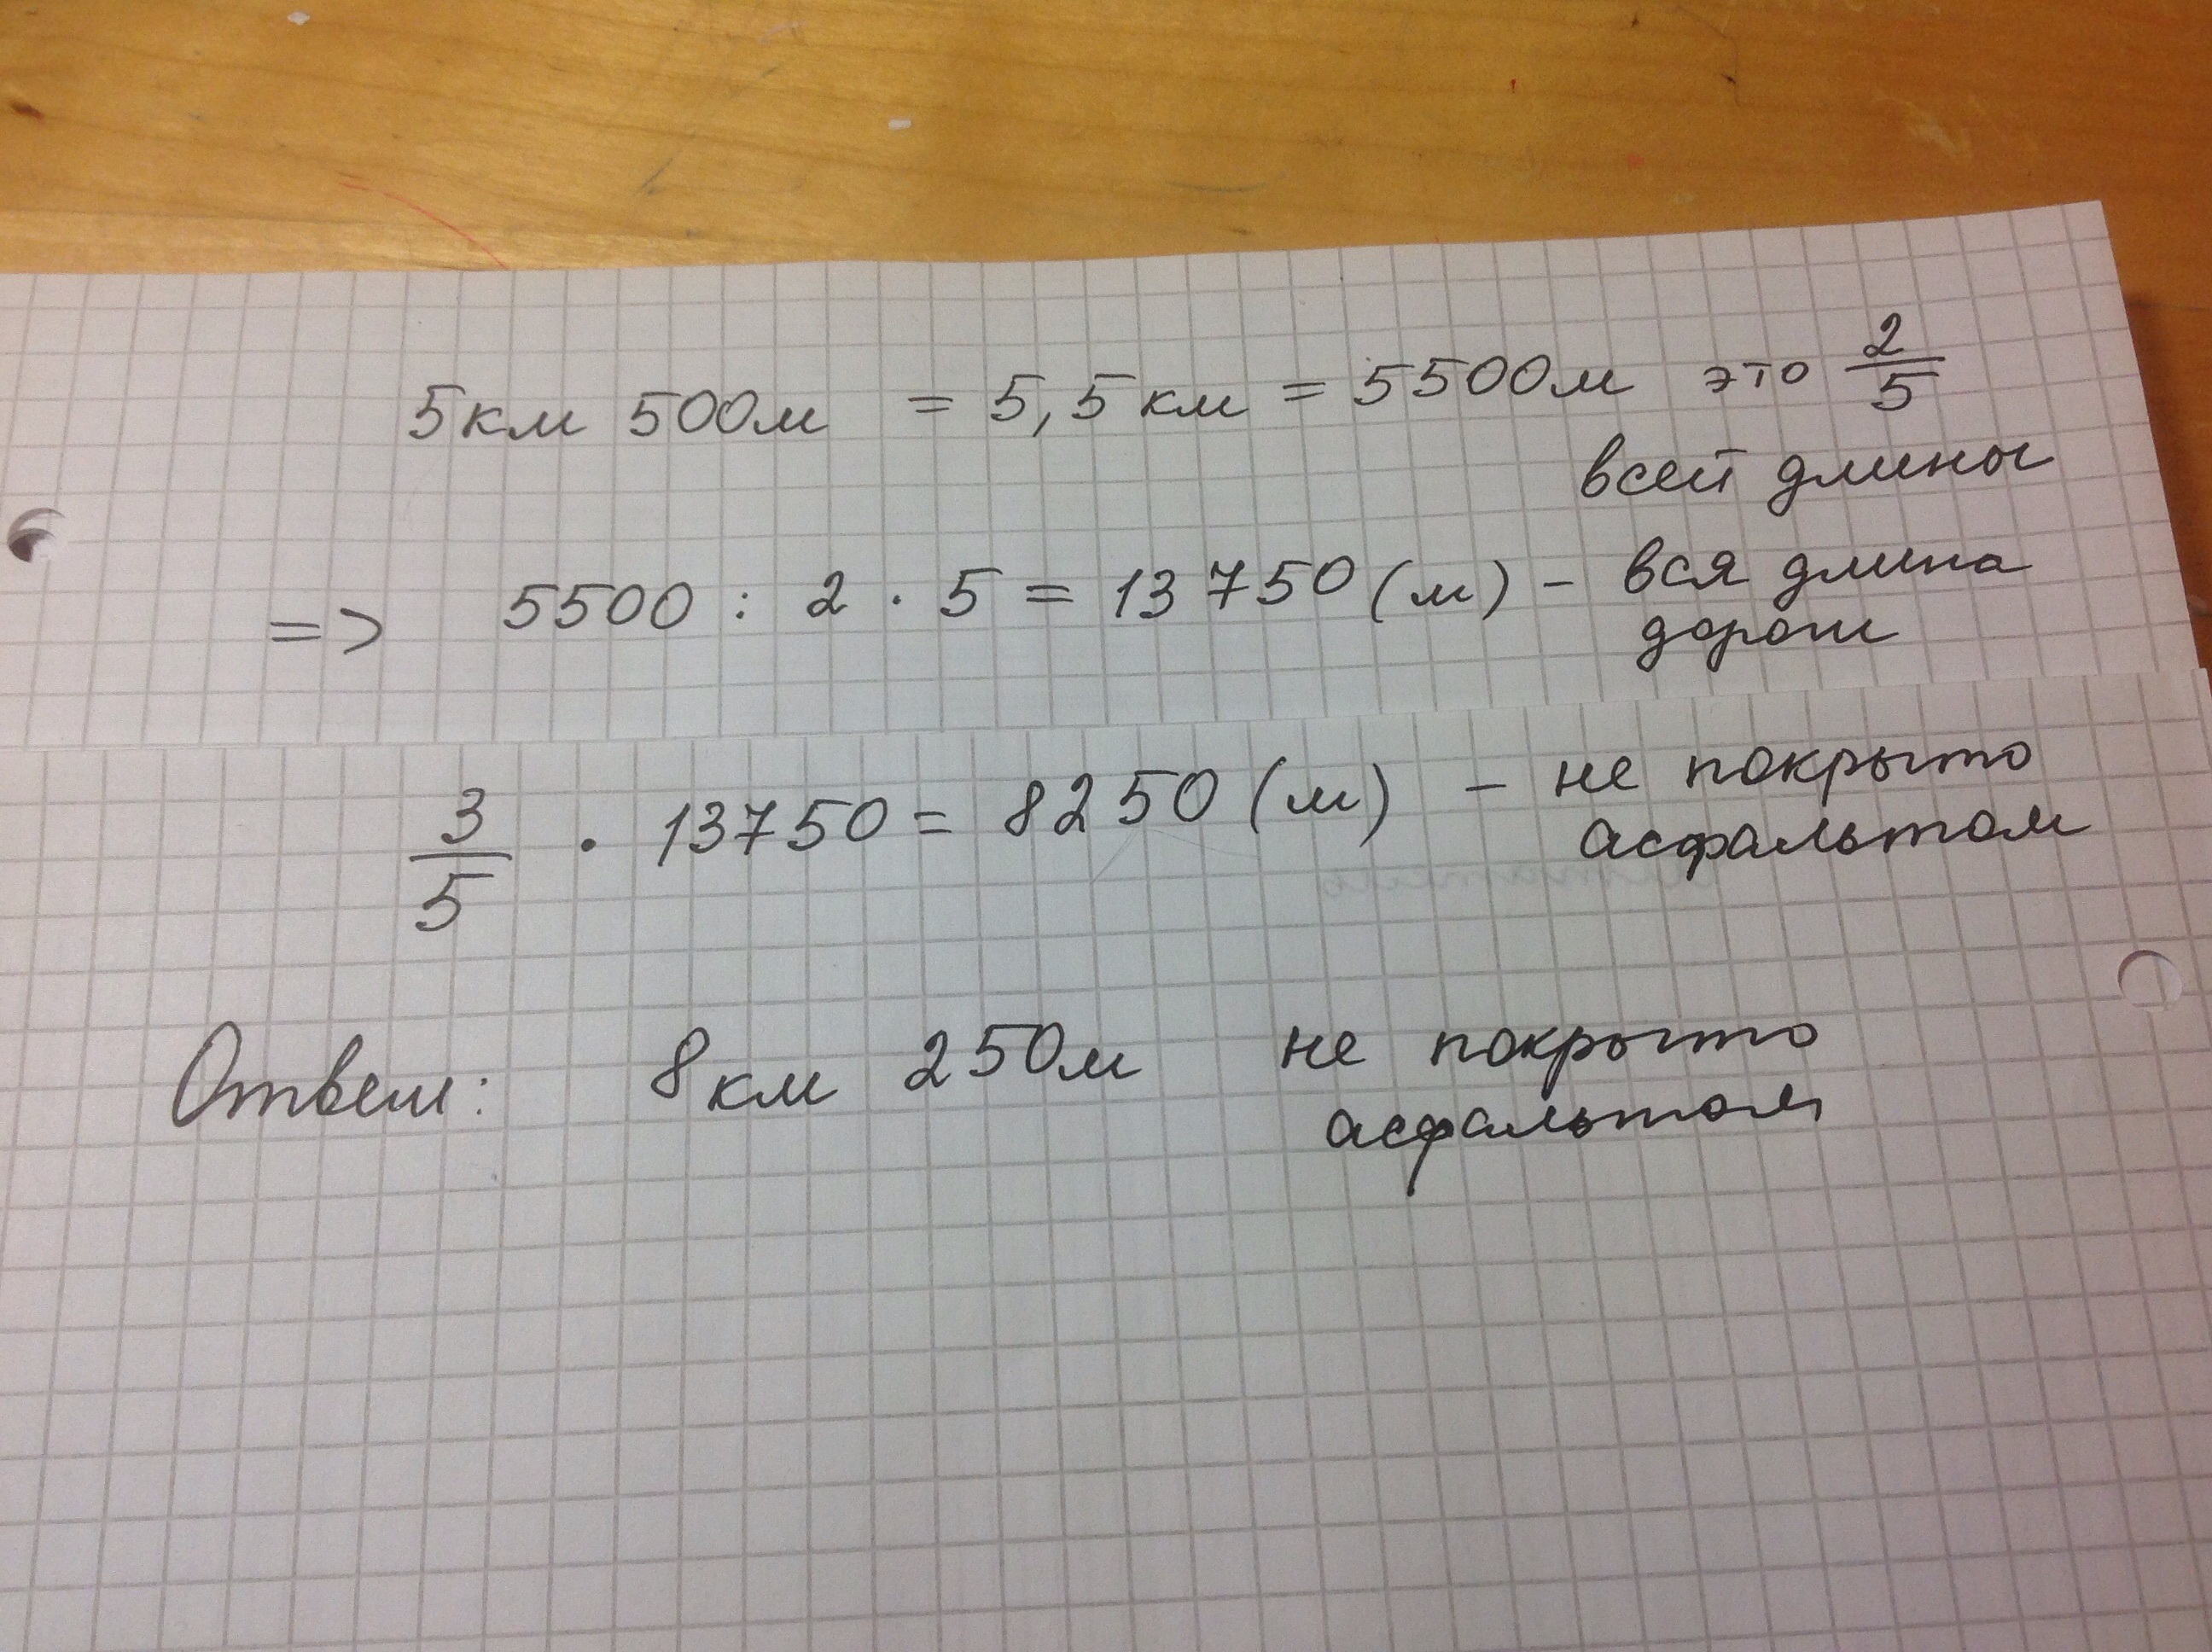 5км 500м = 5,5км = 5500м это 2/5
всей длины
=> 5500 : 2 · 5 = 13750 (м) - вся длина
дороги
3/5 · 13750 = 8250 (м) - не покрыто
асфальтом
Ответ: 8км 250м не покрыто
асфальтом